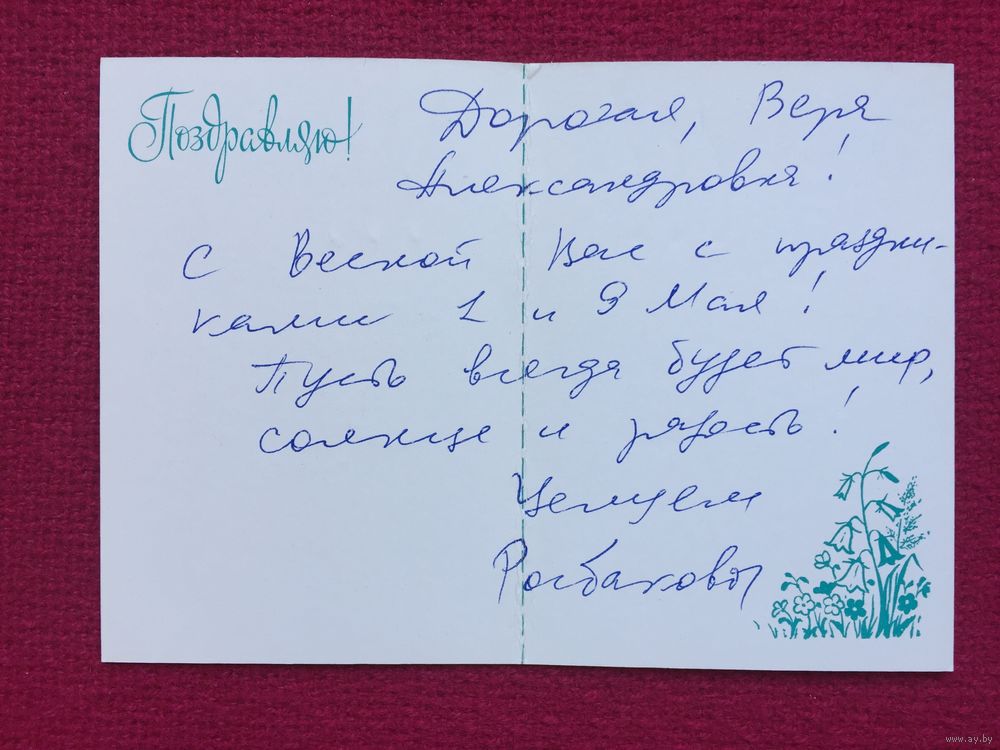 Поздравляю!
Дорогая, Вера
Александровна!
С Весной Вас с праздни-
ками 1 и 9 Мая!
Пусть всегда будет мир,
солнце и радость!
Целуем
www.ay.by